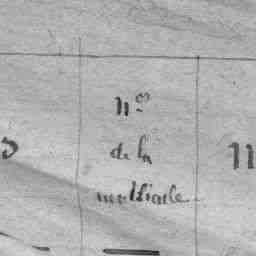 nos
de la
matricule
11